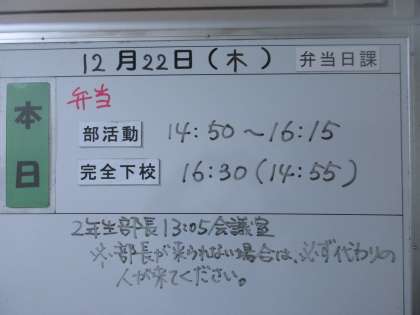 12月22日(木) 弁当日課
本日
弁当
部活動 14:50〜16:15
完全下校 16:30(14:55)
2年生部長13:05会議室
※部長が来られない場合は、必ず代わりの
人が来てください。